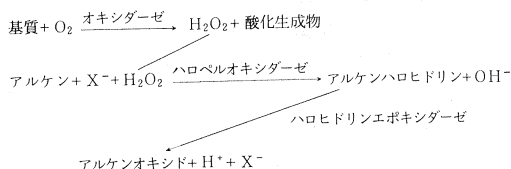 基質+O₂ オキシダーゼ H₂O₂+酸化生成物
アルケン+X⁻+H₂O₂ ハロペルオキシダーゼ アルケンハロヒドリン+OH⁻
ハロヒドリンエポキシダーゼ
アルケンオキシド+H⁺+X⁻